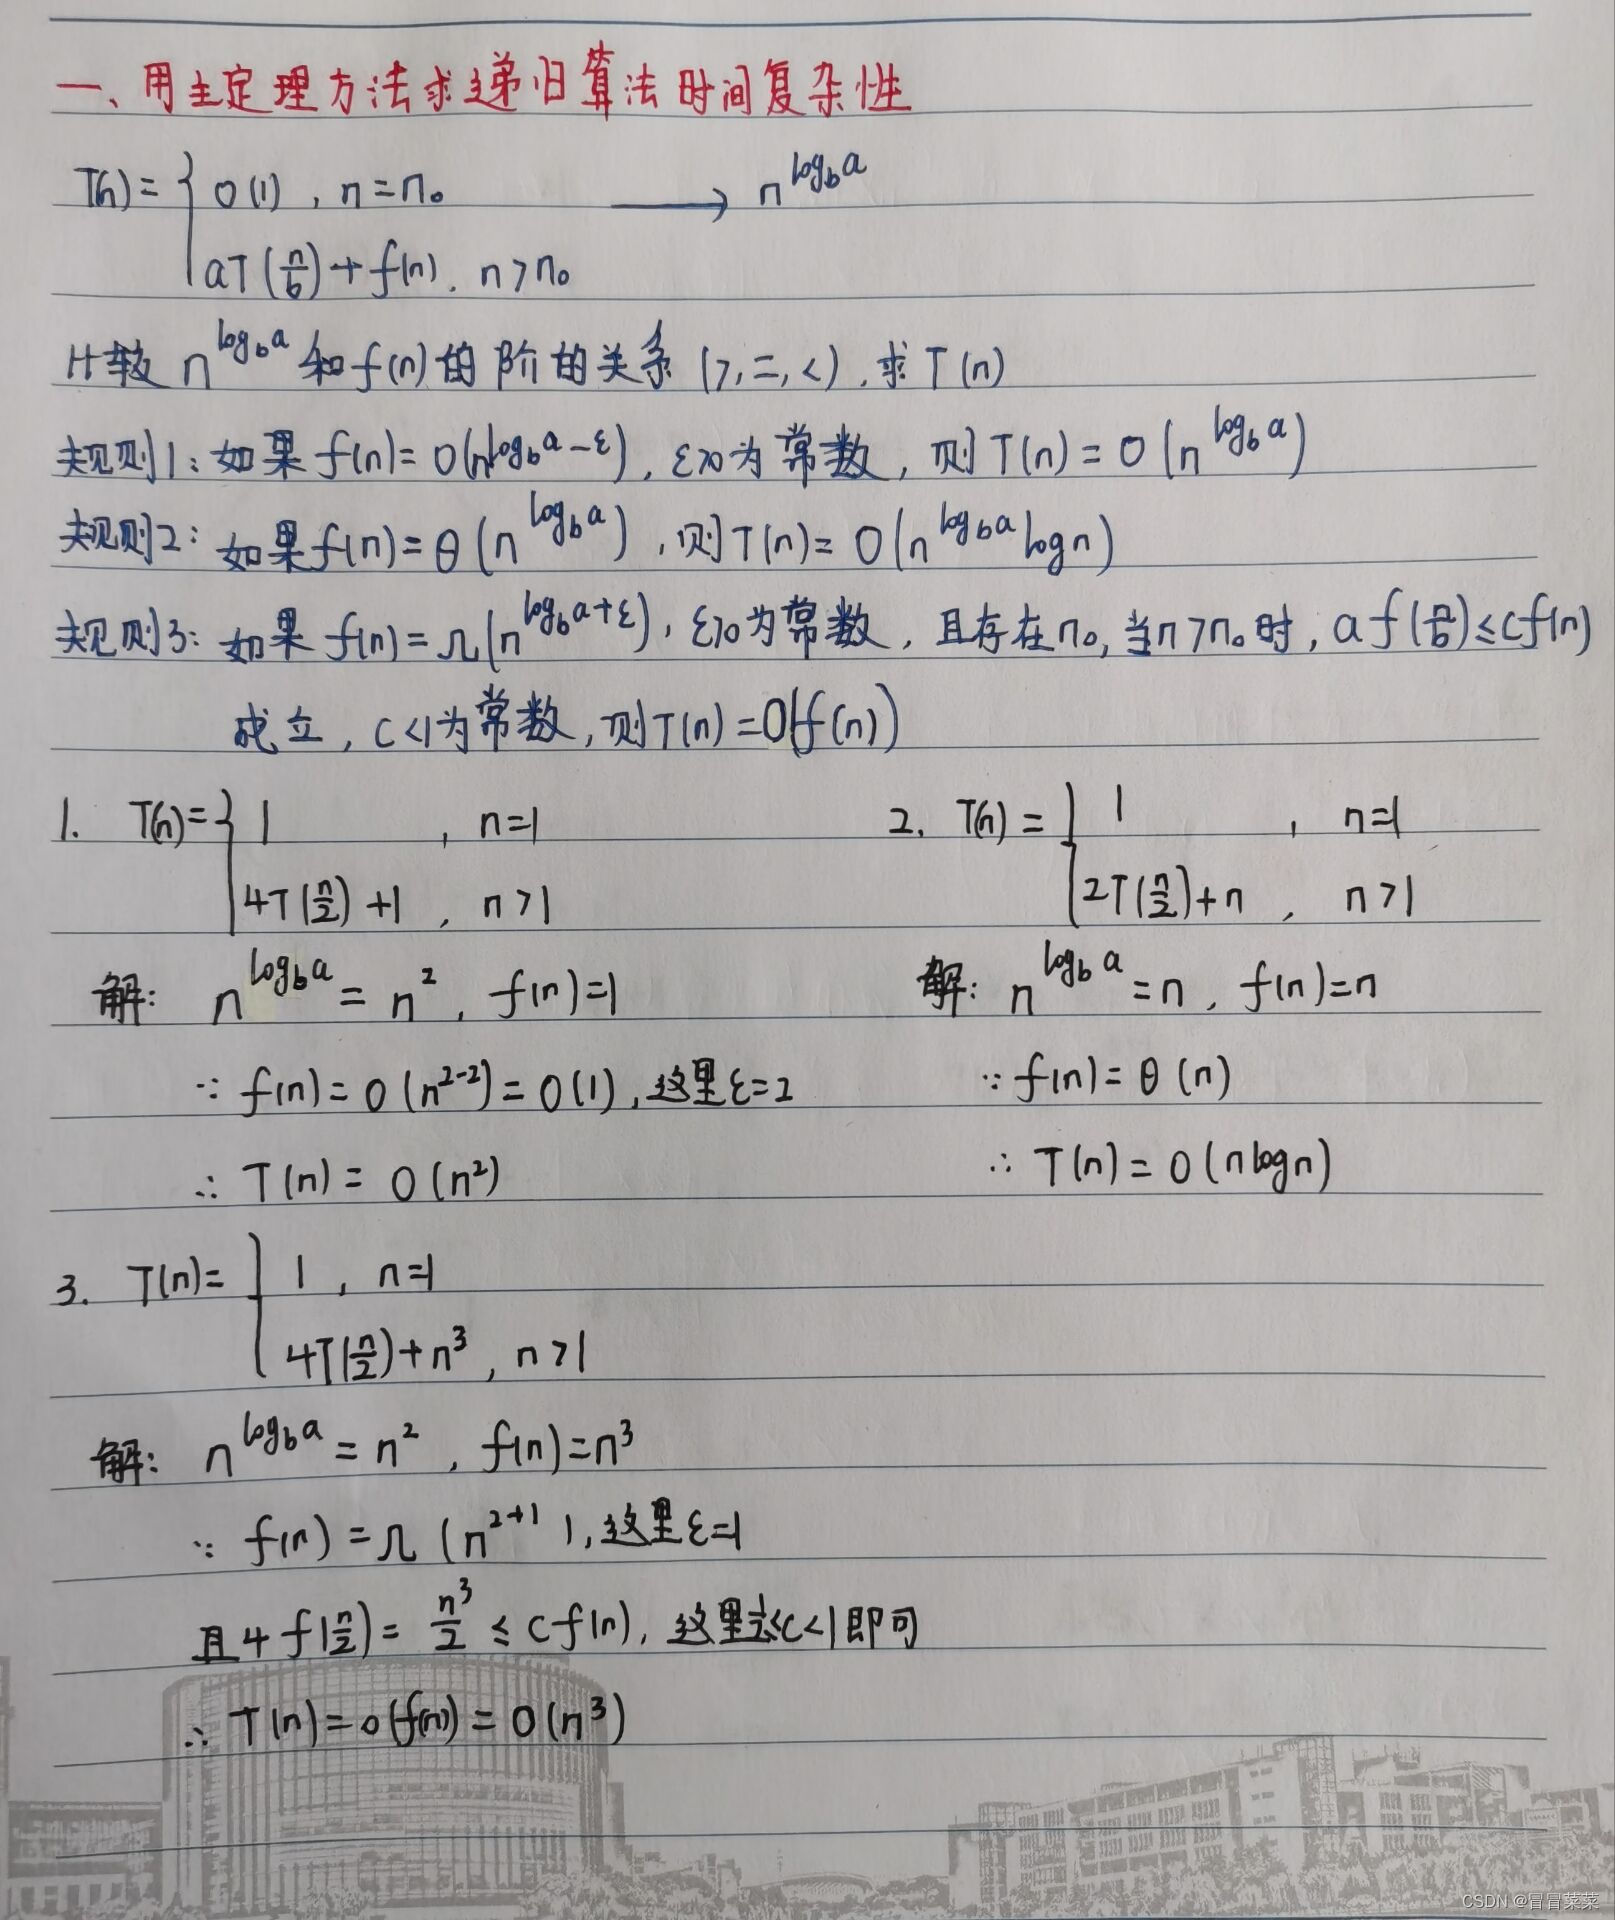 一、用主定理方法求递归算法时间复杂性
T(n)= { O(1) , n=n₀ ⟶ n^{log_b a}
aT(n/b)+f(n), n>n₀
比较 n^{log_b a} 和f(n)的阶的关系(>,=,<),求T(n)
规则1:如果f(n)=O(n^{log_b a-ε}),ε>0为常数,则T(n)=O(n^{log_b a})
规则2:如果f(n)=θ(n^{log_b a}),则T(n)=O(n^{log_b a}logn)
规则3:如果f(n)=Ω(n^{log_b a+ε}),ε>0为常数,且存在n₀,当n>n₀时,af(n/b)≤cf(n)
成立,c<1为常数,则T(n)=O(f(n))
1. T(n)= { 1 , n=1
4T(n/2)+1 , n>1
解: n^{log_b a}=n², f(n)=1
∵ f(n)=O(n^{2-2})=O(1),这里ε=2
∴ T(n)=O(n²)
2. T(n)= { 1 , n=1
2T(n/2)+n , n>1
解: n^{log_b a}=n, f(n)=n
∵ f(n)=θ(n)
∴ T(n)=O(nlogn)
3. T(n)= { 1 , n=1
4T(n/2)+n³ , n>1
解: n^{log_b a}=n², f(n)=n³
∵ f(n)=Ω(n^{2+1}),这里ε=1
且4f(n/2)=n³/2≤cf(n),这里½≤c<1即可
∴ T(n)=O(f(n))=O(n³)
CSDN @冒冒菜菜